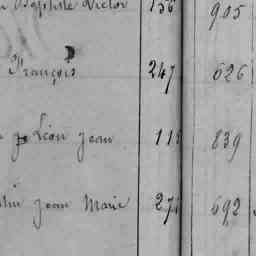 Baptiste Victor 156 905
François 247 626
Léon Jean 839
Jean Marie 692